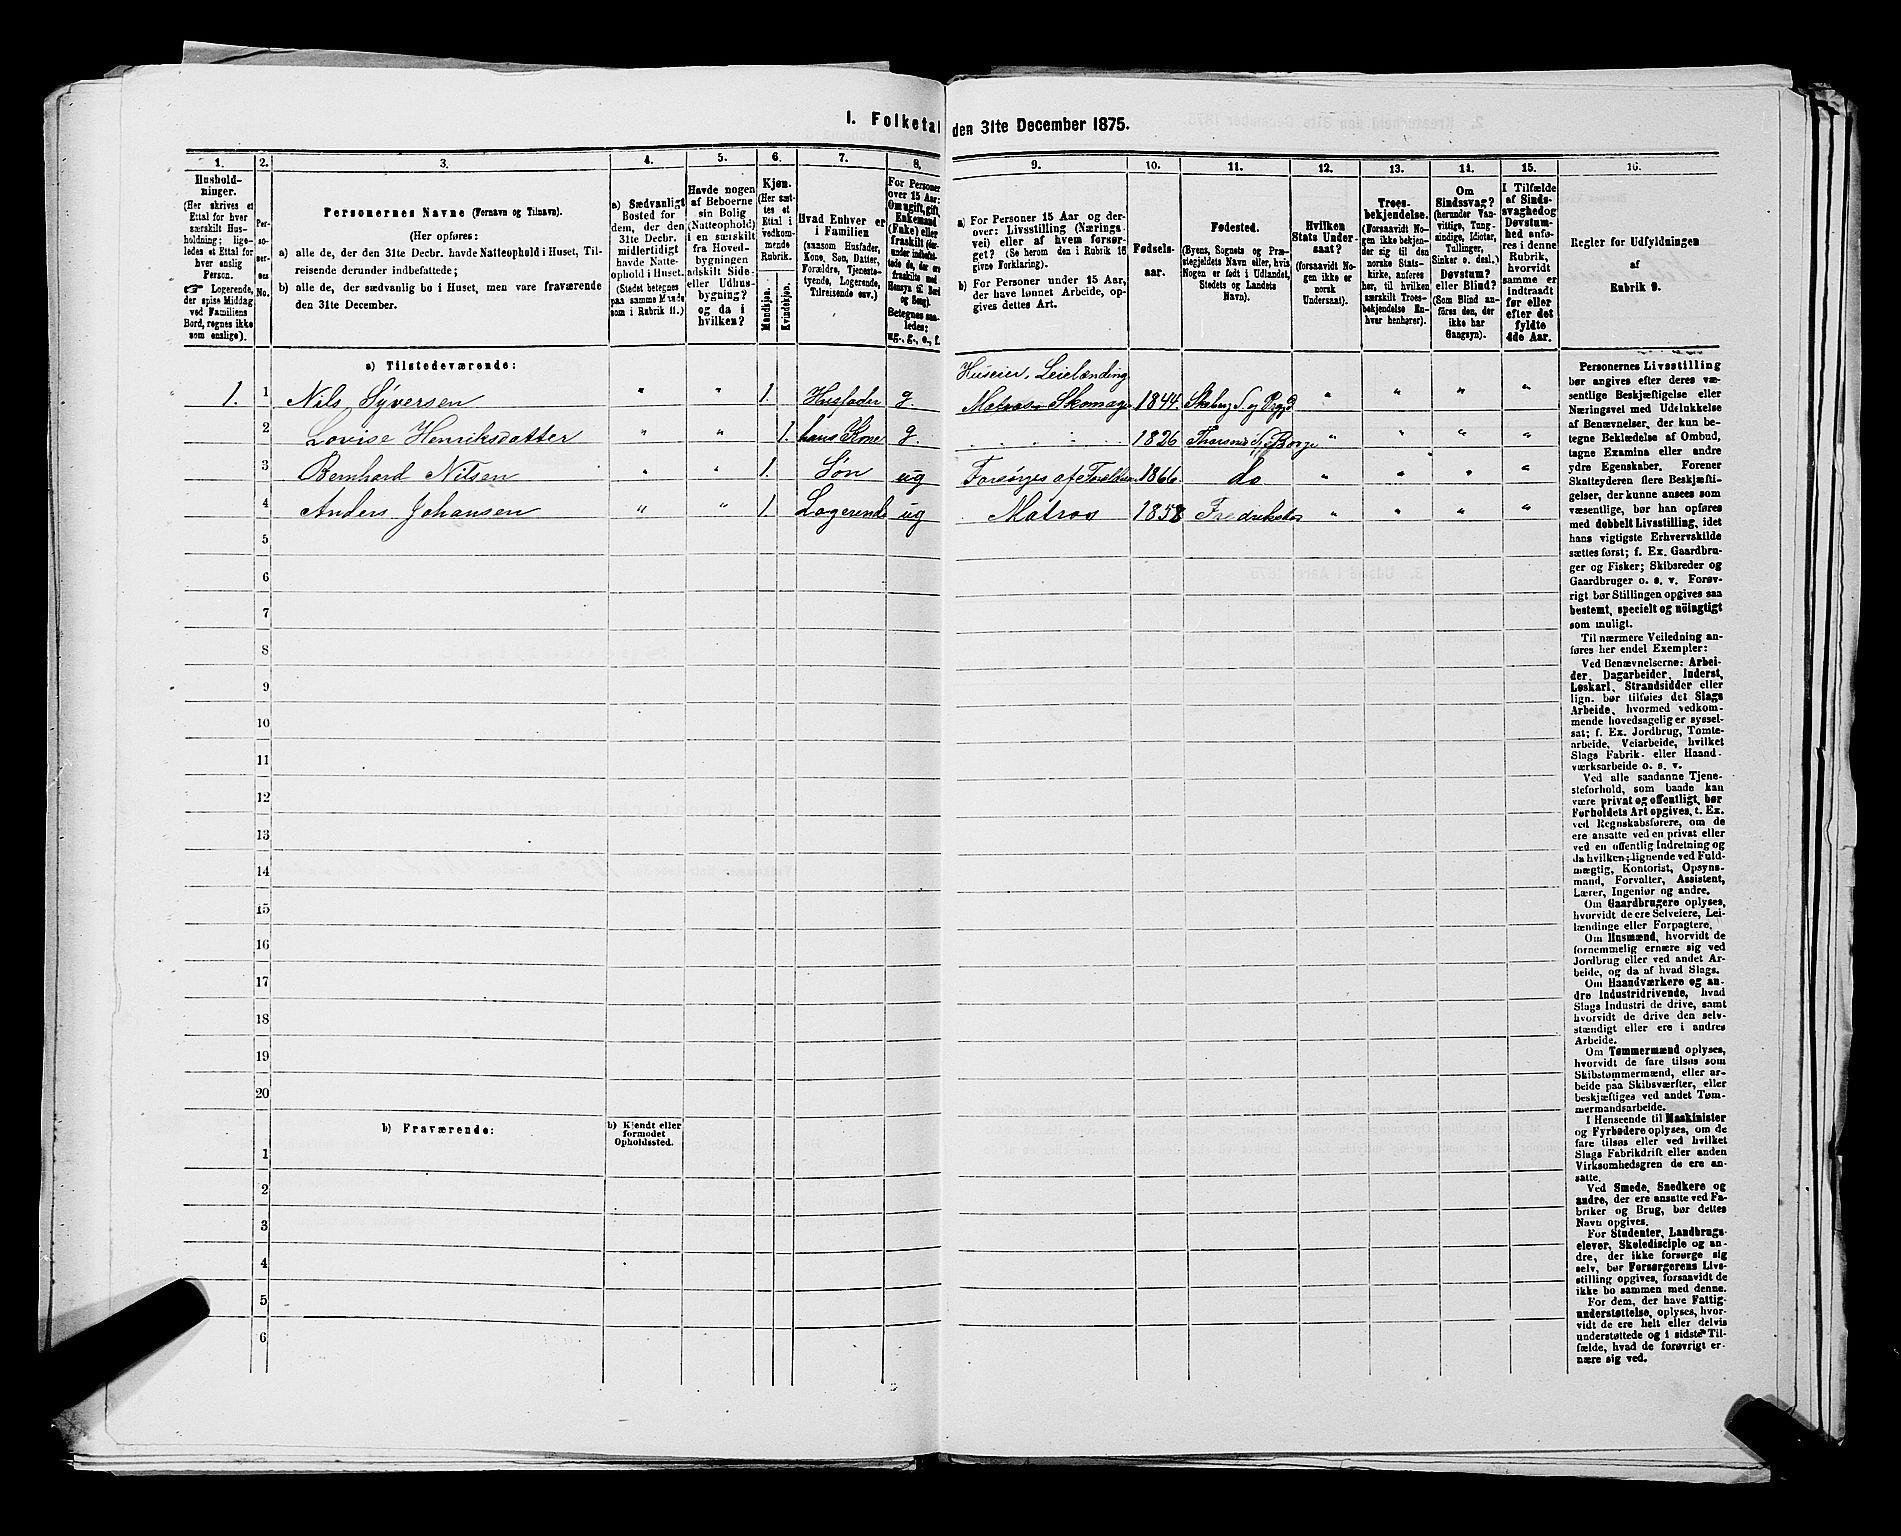 1. Folketal den 31te December 1875.
1.
2.
3.
4.
5.
6.
7.
8.
9.
10.
11.
12.
13.
14.
15.
16.
Hushold-
ninger.
(Her skrives et
Ettal for hver
særskilt Hus-
holdning; lige-
ledes et Ettal for
hver enslig
Person.
☛ Logerende,
der spise Middag
ved Familiens
Bord, regnes ikke
som enslige).
Per-
so-
ner-
nes
No.
Personernes Navne (Fornavn og Tilnavn).
(Her opføres:
a) alle de, der den 31te Decbr. havde Natteophold i Huset, Til-
reisende derunder indbefattede;
b) alle de, der sædvanlig bo i Huset, men vare fraværende
den 31te December.
a) Sædvanligt
Bosted for
dem, der den
31te Decbr.
midlertidigt
havde Natte-
ophold i Huset.
(Stedet betegnes
paa samme Maade
som i Rubrik 11.)
Havde nogen
af Beboerne
sin Bolig
(Natteophold)
i en særskilt
fra Hoved-
bygningen
adskilt Side-
eller Udhus-
bygning?
og da i
hvilken?
Kjøn.
(Her sæt-
tes et
Ettal i
vedkom-
mende
Rubrik.
Mandkjøn.
Kvindekjøn.
Hvad Enhver er
i Familien
(saasom Husfader,
Kone, Søn, Datter,
Forældre, Tjeneste-
tyende, Logerende,
Tilreisende osv.)
For Personer
over 15 Aar:
Om ugift, gift,
Enkemand
(Enke) eller
fraskilt (der-
under indbefat-
tede de, der ere
fraskilte med
Hensyn til Bord
og Seng).
Betegnes saa-
ledes:
ug., g., e., f.
a) For Personer 15 Aar og der-
over: Livsstilling (Nærings-
vei) eller af hvem forsør-
get? (Se herom den i Rubrik 16
givne Forklaring).
b) For Personer under 15 Aar,
der have lønnet Arbeide, op-
gives dettes Art.
Fødsels-
aar.
Fødested.
(Byens, Sognets og Præ-
stegjeldets Navn eller, hvis
Nogen er født i Udlandet,
Stedets og Landets
Navn).
Hvilken
Stats Under-
saat?
(forsaavidt No-
gen ikke er
norsk
Undersaat).
Troes-
bekjendelse.
(Forsaavidt No-
gen ikke bekjen-
der sig til den
norske Stats-
kirke, anføres
her, til hvilken
særskilt Troes-
bekjendelse En-
hver henhører).
Om
Sindssvag?
(herunder Van-
vittige, Tung-
sindige, Idioter,
Tullinger,
Sinker o. desl.)
Døvstum?
eller Blind?
(Som Blind an-
føres den, der
ikke har
Gangsyn).
I Tilfælde
af Sinds-
svaghed og
Døvstum-
hed anfø-
res i denne
Rubrik,
hvorvidt
samme er
indtraadt
før eller
efter det
fyldte
4de Aar.
Regler for Udfyldningen
af
Rubrik 9.
a) Tilstedeværende:
Huseier, Leielænding
1. 1 Nils Syversen " " 1. Husfader g. Matros Skomager 1844 " " " "
2 Lovise Henriksdatter " " 1. hans Kone g. 1826 Borge " " " "
3 Bernhard Nilsen " " 1. Søn ug Forsørges af Forældrene 1866. do " " " "
4 Anders Johansen " " 1. Logerende ug Matros 1858 Fredrikstad " " " "
5
6
7
8
9
10
11
12
13
14
15
16
17
18
19
20
b) Fraværende:
b) Kjendt eller
formodet
Opholdssted.
1
2
3
4
5
6
Personernes Livsstilling
bør angives efter deres væ-
sentlige Beskjæftigelse eller
Næringsvei med Udelukkelse
af Benævnelser, der kun be-
tegne Beklædelse af Ombud,
tagne Examina eller andre
ydre Egenskaber. Forener
Skatteyderen flere Beskjæfti-
gelser, der kunne ansees som
væsentlige, bør han opføres
med dobbelt Livsstilling, idet
hans vigtigste Erhvervskilde
sættes først; f. Ex. Gaardbru-
ger og Fisker; Skibsreder og
Gaardbruger o. s. v. Forøv-
rigt bør Stillingen opgives saa
bestemt, specielt og nöiagtigt
som muligt.
Til nærmere Veiledning an-
føres her endel Exempler:
Ved Benævnelserne: Arbei-
der, Dagarbeider, Inderst,
Løskarl, Strandsidder eller
lign. bør tilføies det Slags
Arbeide, hvormed vedkom-
mende hovedsagelig er syssel-
sat; f. Ex. Jordbrug, Tomte-
arbeide, Veiarbeide, hvilket
Slags Fabrik- eller Haand-
værksarbeide o. s. v.
Ved alle saadanne Tjene-
steforhold, som baade kan
være privat og offentligt, bør
Forholdets Art opgives, t. Ex.
ved Regnskabsførere, om de
ere ansatte ved en privat eller
ved en offentlig Indretning og
da hvilken; lignende ved Fuld-
mægtig, Kontorist, Opsyns-
mand, Forvalter, Assistent,
Lærer, Ingeniør og andre.
Om Gaardbrugere oplyses,
hvorvidt de ere Selveiere, Lei-
lændinge eller Forpagtere.
Om Husmænd, hvorvidt de
fornemmelig ernære sig ved
Jordbrug eller ved andet Ar-
beide, og da af hvad Slags.
Om Haandværkere og an-
dre Industridrivende, hvad
Slags Industri de drive, samt
hvorvidt de drive den selv-
stændigt eller ere i andres
Arbeide.
Om Tømmermænd oplyses,
hvorvidt de fare tilsøs som
Skibstømmermænd, eller ar-
beide paa Skibsværfter, eller
beskjæftiges ved andet Tøm-
mermandsarbeide.
I Henseende til Maskinister
og Fyrbødere oplyses, om de
fare tilsøs eller ved hvilket
Slags Fabrikdrift eller anden
Virksomhedsgren de ere an-
satte.
Ved Smede, Snedkere og
andre, der ere ansatte ved Fa-
briker og Brug, bør dettes
Navn opgives.
For Studenter, Landbrugs-
elever, Skoledisciple og an-
dre, der ikke forsørge sig
selv, bør Forsørgerens Livs-
stilling opgives, forsaavidt de
ikke bo sammen med denne.
For dem, der have Fattig-
understøttelse, oplyses, hvor-
vidt de ere helt eller delvis
understøttede og i sidste Til-
fælde, hvad de forøvrigt er-
nære sig ved.